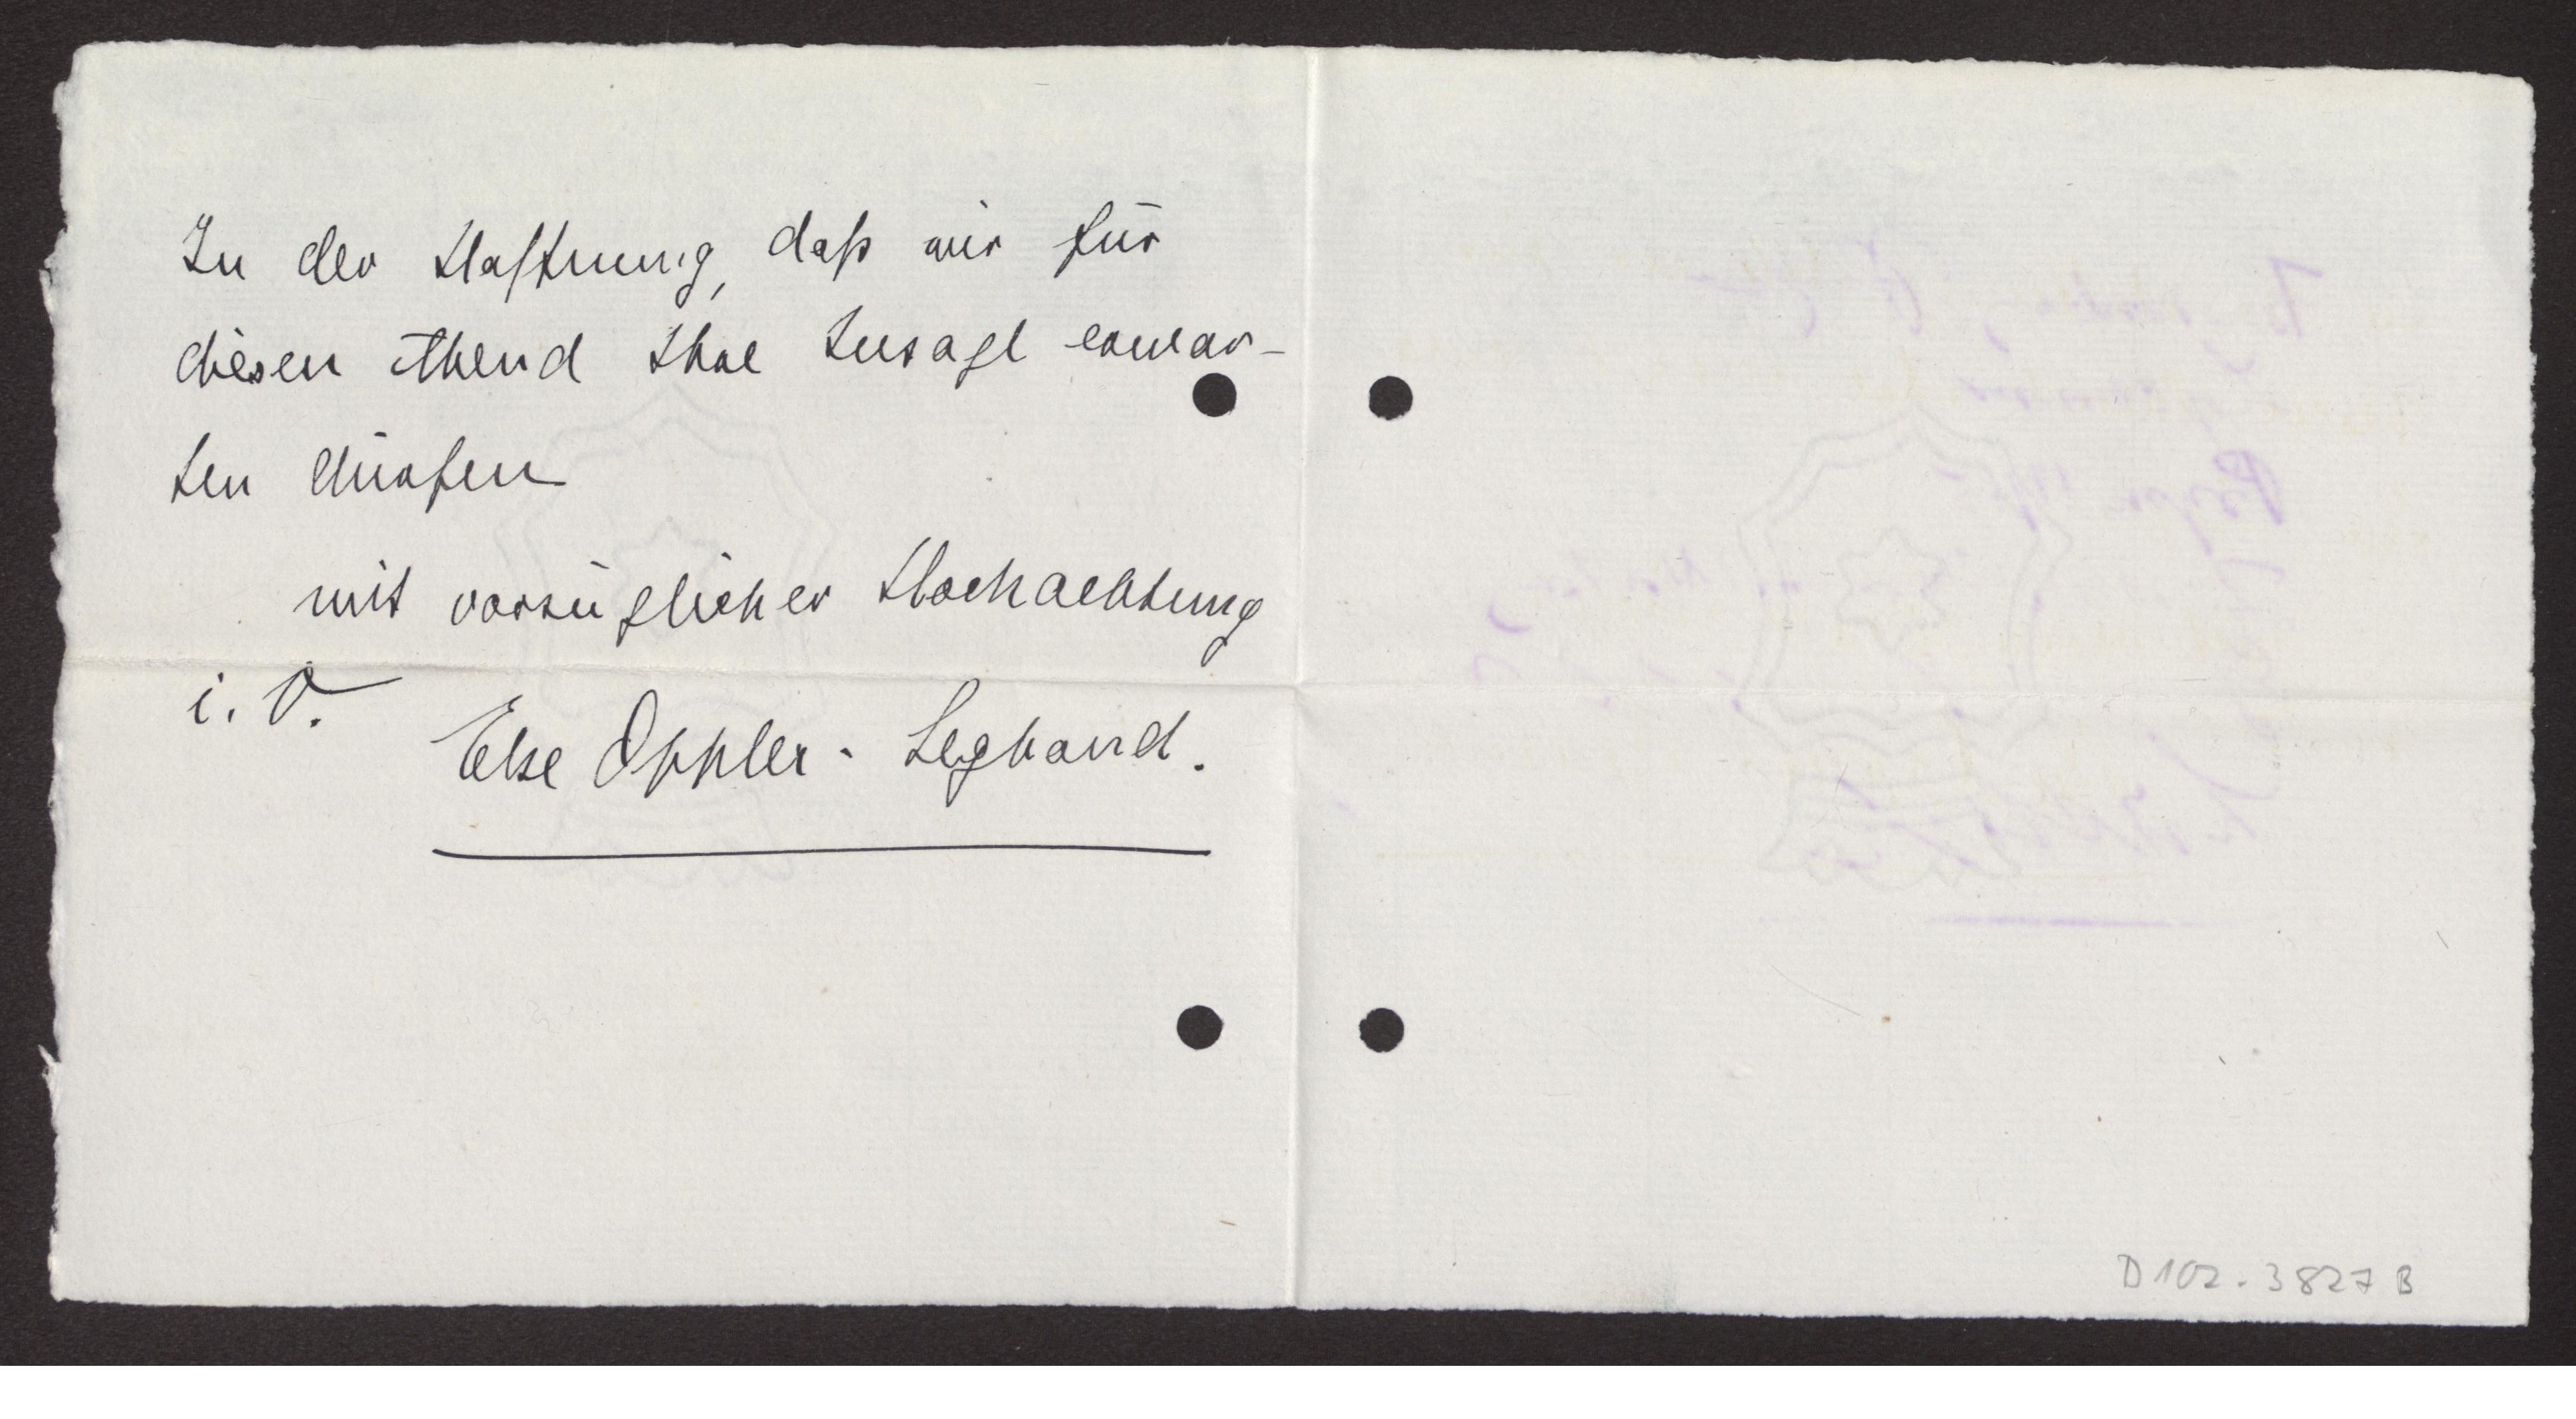 In der Hoffnung, daß wir für
diesen Abend Ihre Zusage erwar-
ten dürfen
mit vorzüglicher Hochachtung
i. V.
Else Oppler-Legband.
D 102.3827 B